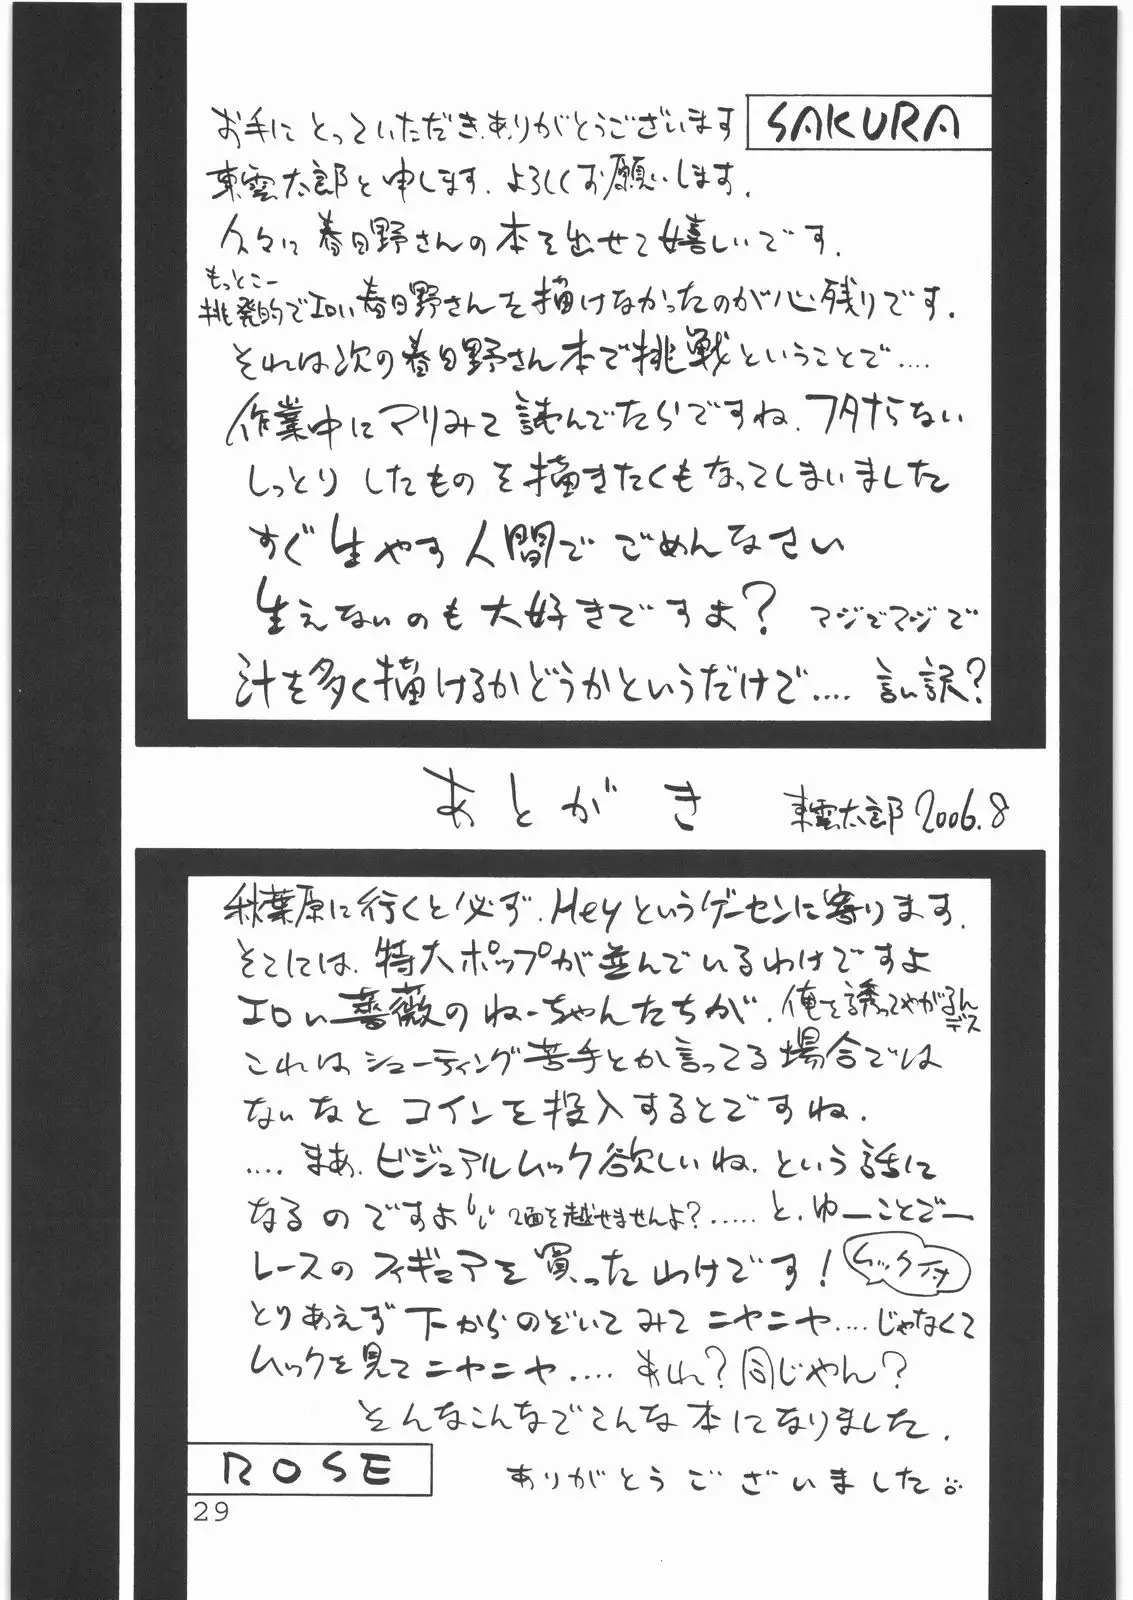 SAKURA
お手にとっていただき、ありがとうございます
東雲太郎と申します。よろしくお願いします。
久々に春日野さんの本を出せて嬉しいです。
もっとこー
挑発的でエロい春日野さんを描けなかったのが心残りです。
それは次の春日野さん本で挑戦ということで....
作業中にマリみて読んでたらですね、フタナらない
しっとりしたものを描きたくもなってしまいました
すぐ生やす人間でごめんなさい
生えないのも大好きですよ? マジでマジで
汁を多く描けるかどうかというだけで.... 言い訳?
あとがき 東雲太郎 2006.8
秋葉原に行くと必ず、Heyというゲーセンに寄ります。
そこには、特大ポップが並んでいるわけですよ
エロい薔薇のねーちゃんたちが、俺を誘ってやがるんデス
これはシューティング苦手とか言ってる場合では
ないなとコインを投入するとですね、
....まあ、ビジュアルムック欲しいね、という話に
なるのですよ 2面を越せませんよ?.....と、ゆーことでー
レースのフィギュアを買ったわけです! ムック付
とりあえず下からのぞいてみてニヤニヤ....じゃなくて
ムックを見てニヤニヤ.... あれ?同じやん?
そんなこんなでこんな本になりました。
ありがとうございました
ROSE
29